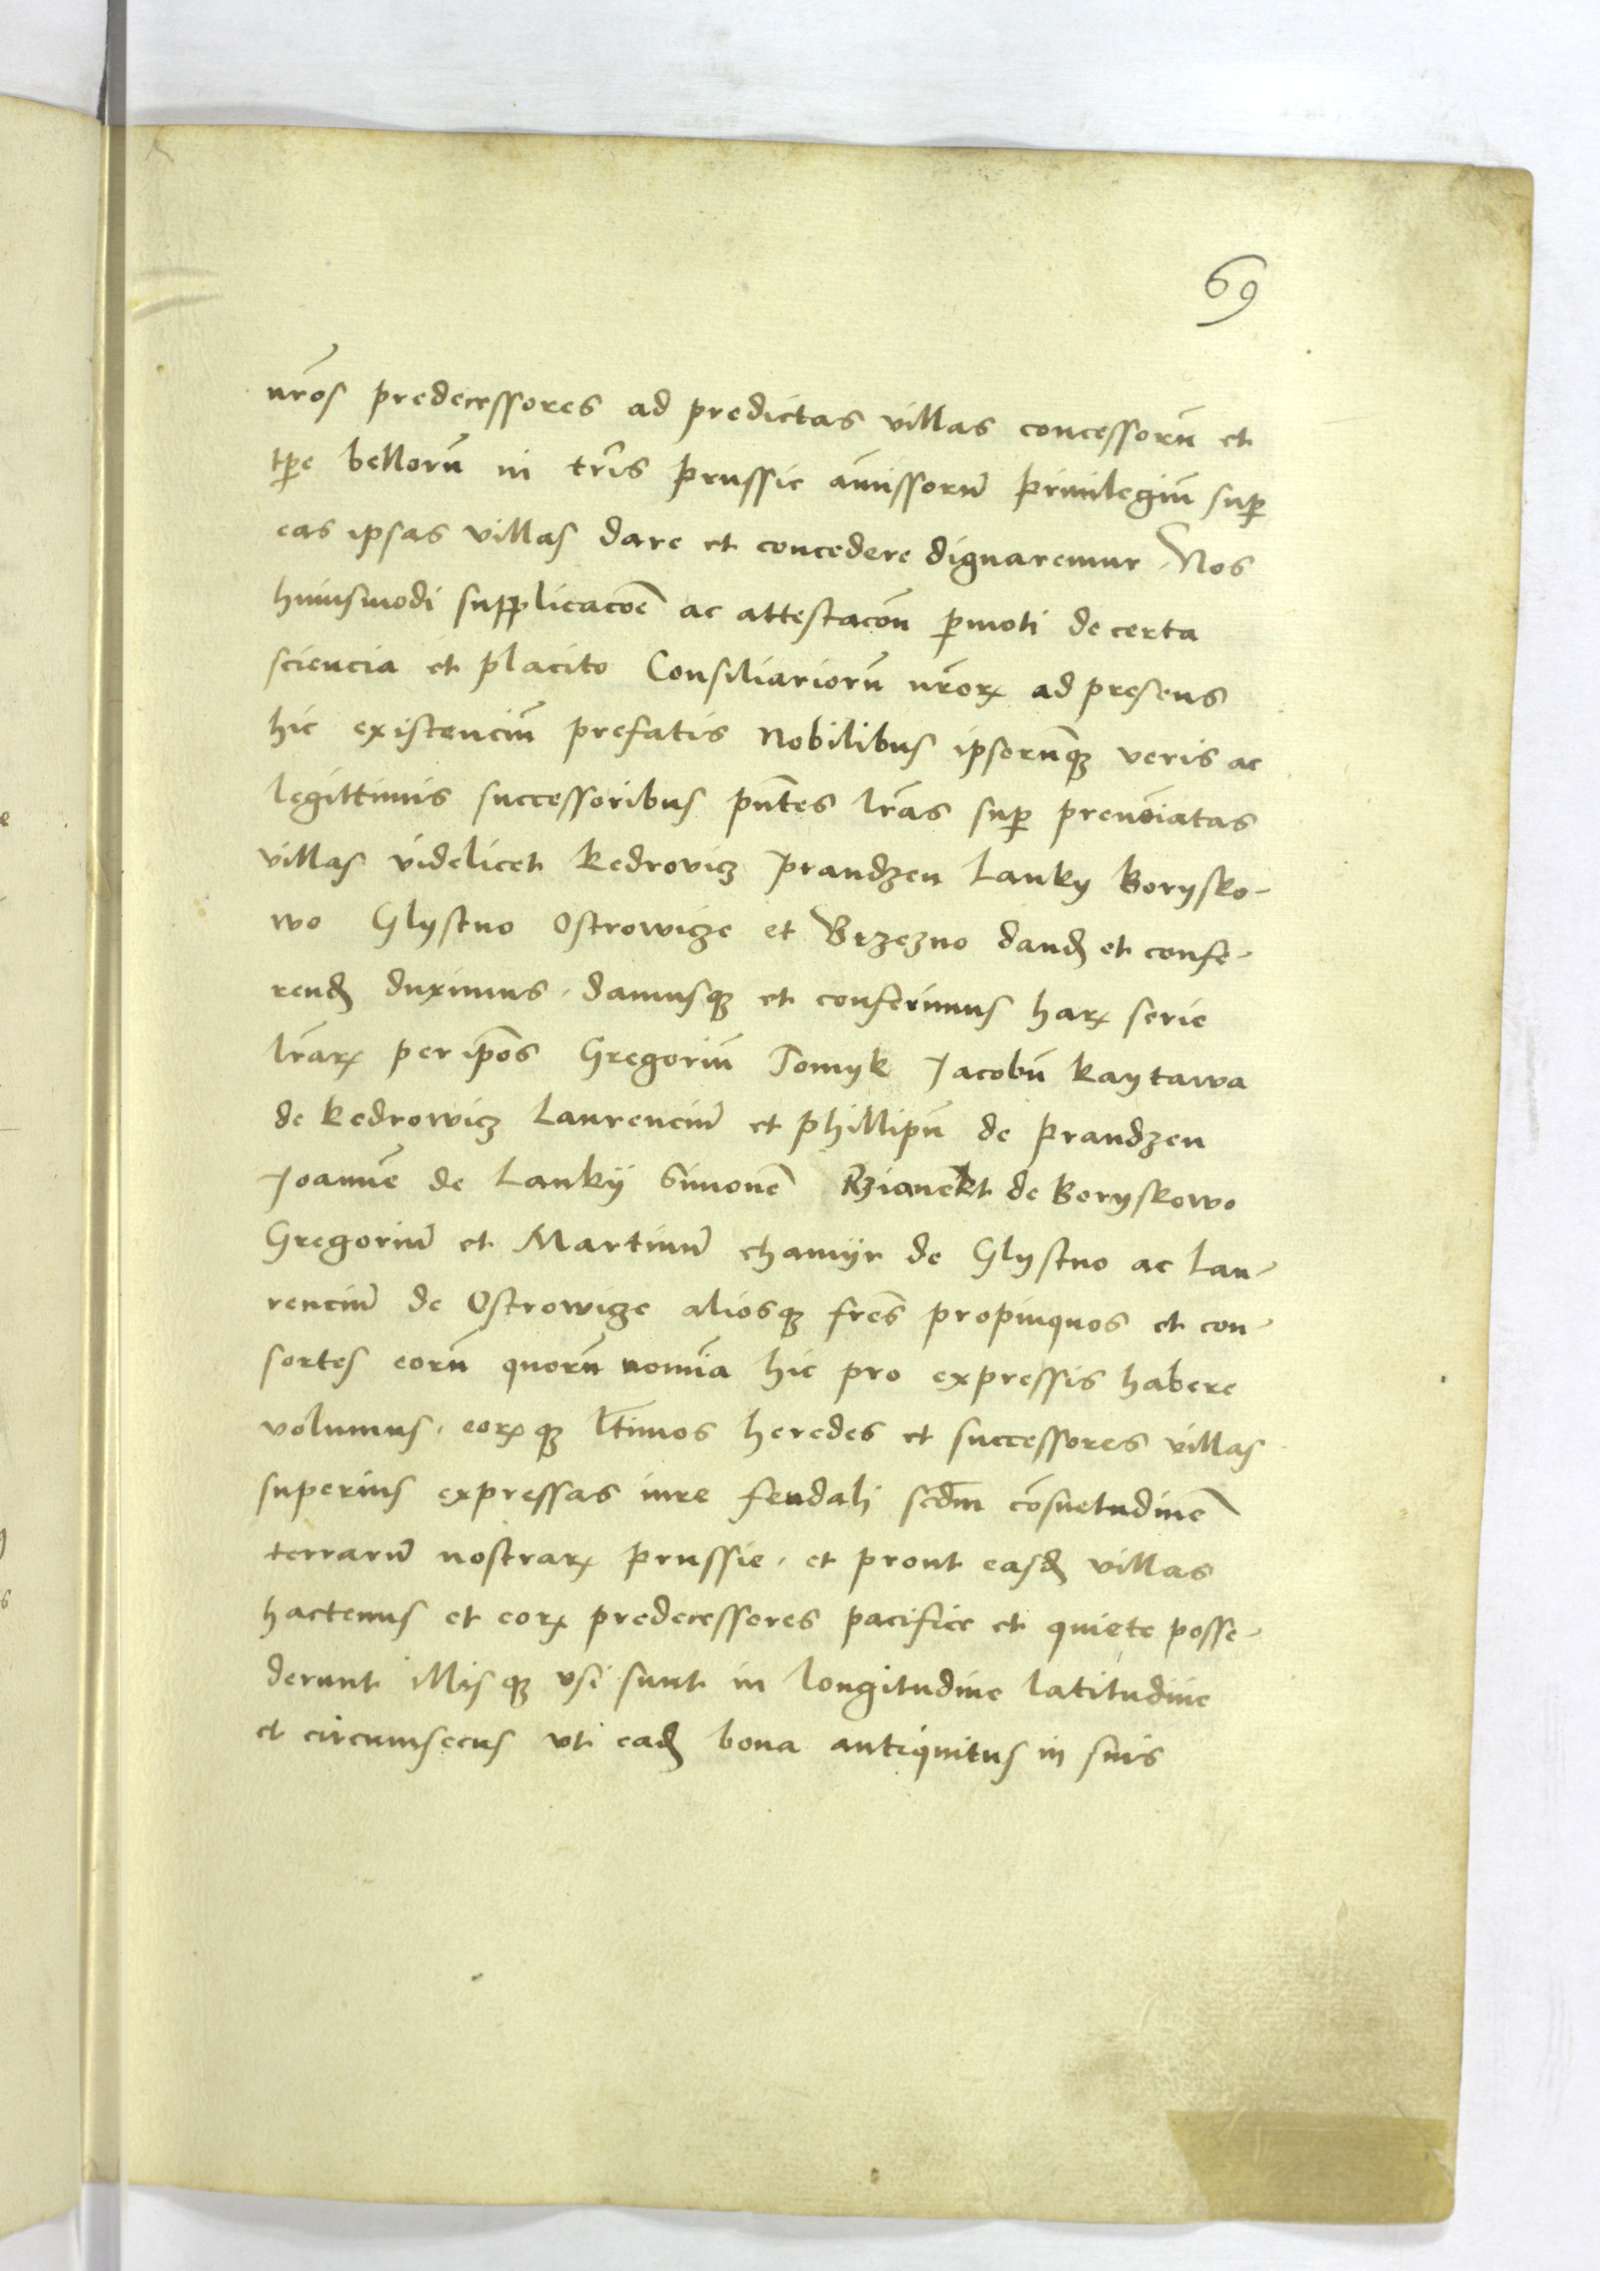 69
nr̃os predecessores ad predictas villas concessorũ et
tp̃e bellorũ in tr̃is prussie amissorũ priuilegiũ sup̲
eas ipsas villas dare et concedere dignaremur. Nos
huiusmodi supplicacõe ac attestacõn p̲moti de certa
sciencia et placito Consiliariorũ nr̃orꝝ ad presens
hic existenciũ prefatis Nobilibus ipsorũqꝫ veris ac
legittimis successoribus pñtes lr̃as sup̲ prenõiatas
villas videlicet kedrovicz prandzen Lanky Borysko-
wo Glystno Ostrowicze et Brzezno dandꝫ et confe-
rendꝫ duximus. damusqꝫ et conferimus harꝝ serie
lr̃arꝝ per ip̃os Gregoriũ Tomyk Jacobũ kaytawa
de kedrowicz Laurenciũ et phillipũ de prandzen
Joannẽ de Lankÿ Simonẽ de Boryskowo
Gregoriũ et Martinũ chamÿr de Glystno ac Lau-
renciũ de Ostrowicze aliosqꝫ fr̃es propinquos et con-
sortes eorũ quorũ nomĩa hic pro expressis habere
volumus. eorꝝqꝫ lt̃imos heredes et successores villas
superius expressas iure feudali scd̃m cõsuetudinẽ
terrarũ nostrarꝝ prussie. et prout easdꝫ villas
hactenus et eorꝝ predecessores pacifice et quiete posse-
derunt illisqꝫ vsi sunt in longitudine latitudine
et circumsecus vti eadꝫ bona antiquitus in suis